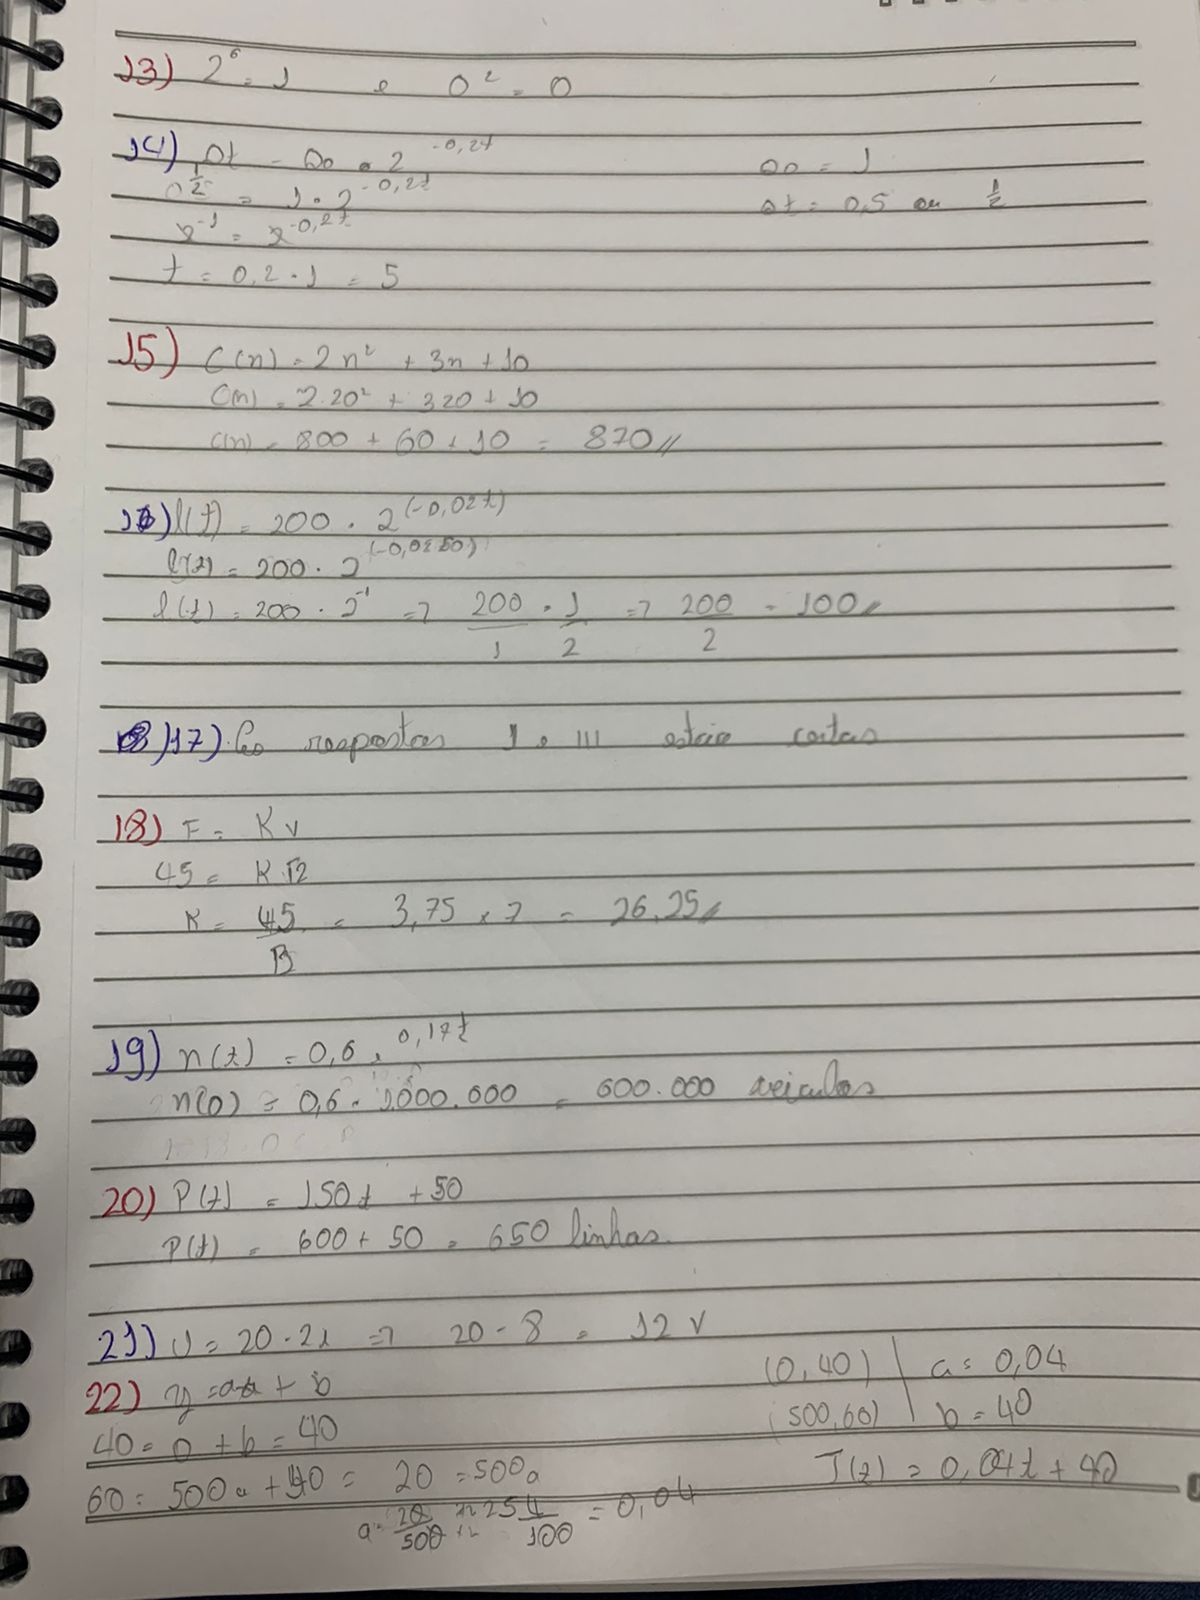 13) 2⁶ = 1 e 0² = 0
14) Qt = Q₀ • 2^-0,2t Q₀ = 1
1/2 = 1 • 2^-0,2t Qt = 0,5 ou 1/2
2^-1 = 2^-0,2t
t = 0,2 • 1 = 5
15) C(n) = 2n² + 3n + 10
C(n) = 2.20² + 320 + 10
C(n) = 800 + 60 + 10 = 870//
16) l(t) = 200 • 2^(-0,02t)
l(t) = 200 • 2^(-0,02 50)
l(t) = 200 • 2^-1 => 200/1 • 1/2 => 200/2 = 100//
17) As respostas I e III estão certas
18) F = K v
45 = K 12
K = 45/12 = 3,75 x 7 = 26,25//
19) n(t) = 0,6 • 0,17t
n(0) = 0,6 • 1.000.000 = 600.000 veiculos
20) P(t) = 150t + 50
P(t) = 600 + 50 = 650 linhas.
21) U = 20 - 2i => 20 - 8 = 12 V
22) y = ax + b (0,40) | a = 0,04
40 = 0 + b = 40 (500,60) | b = 40
60 = 500a + 40 = 20 = 500a T(t) = 0,04t + 40
a = 20/500 4/100 = 0,04